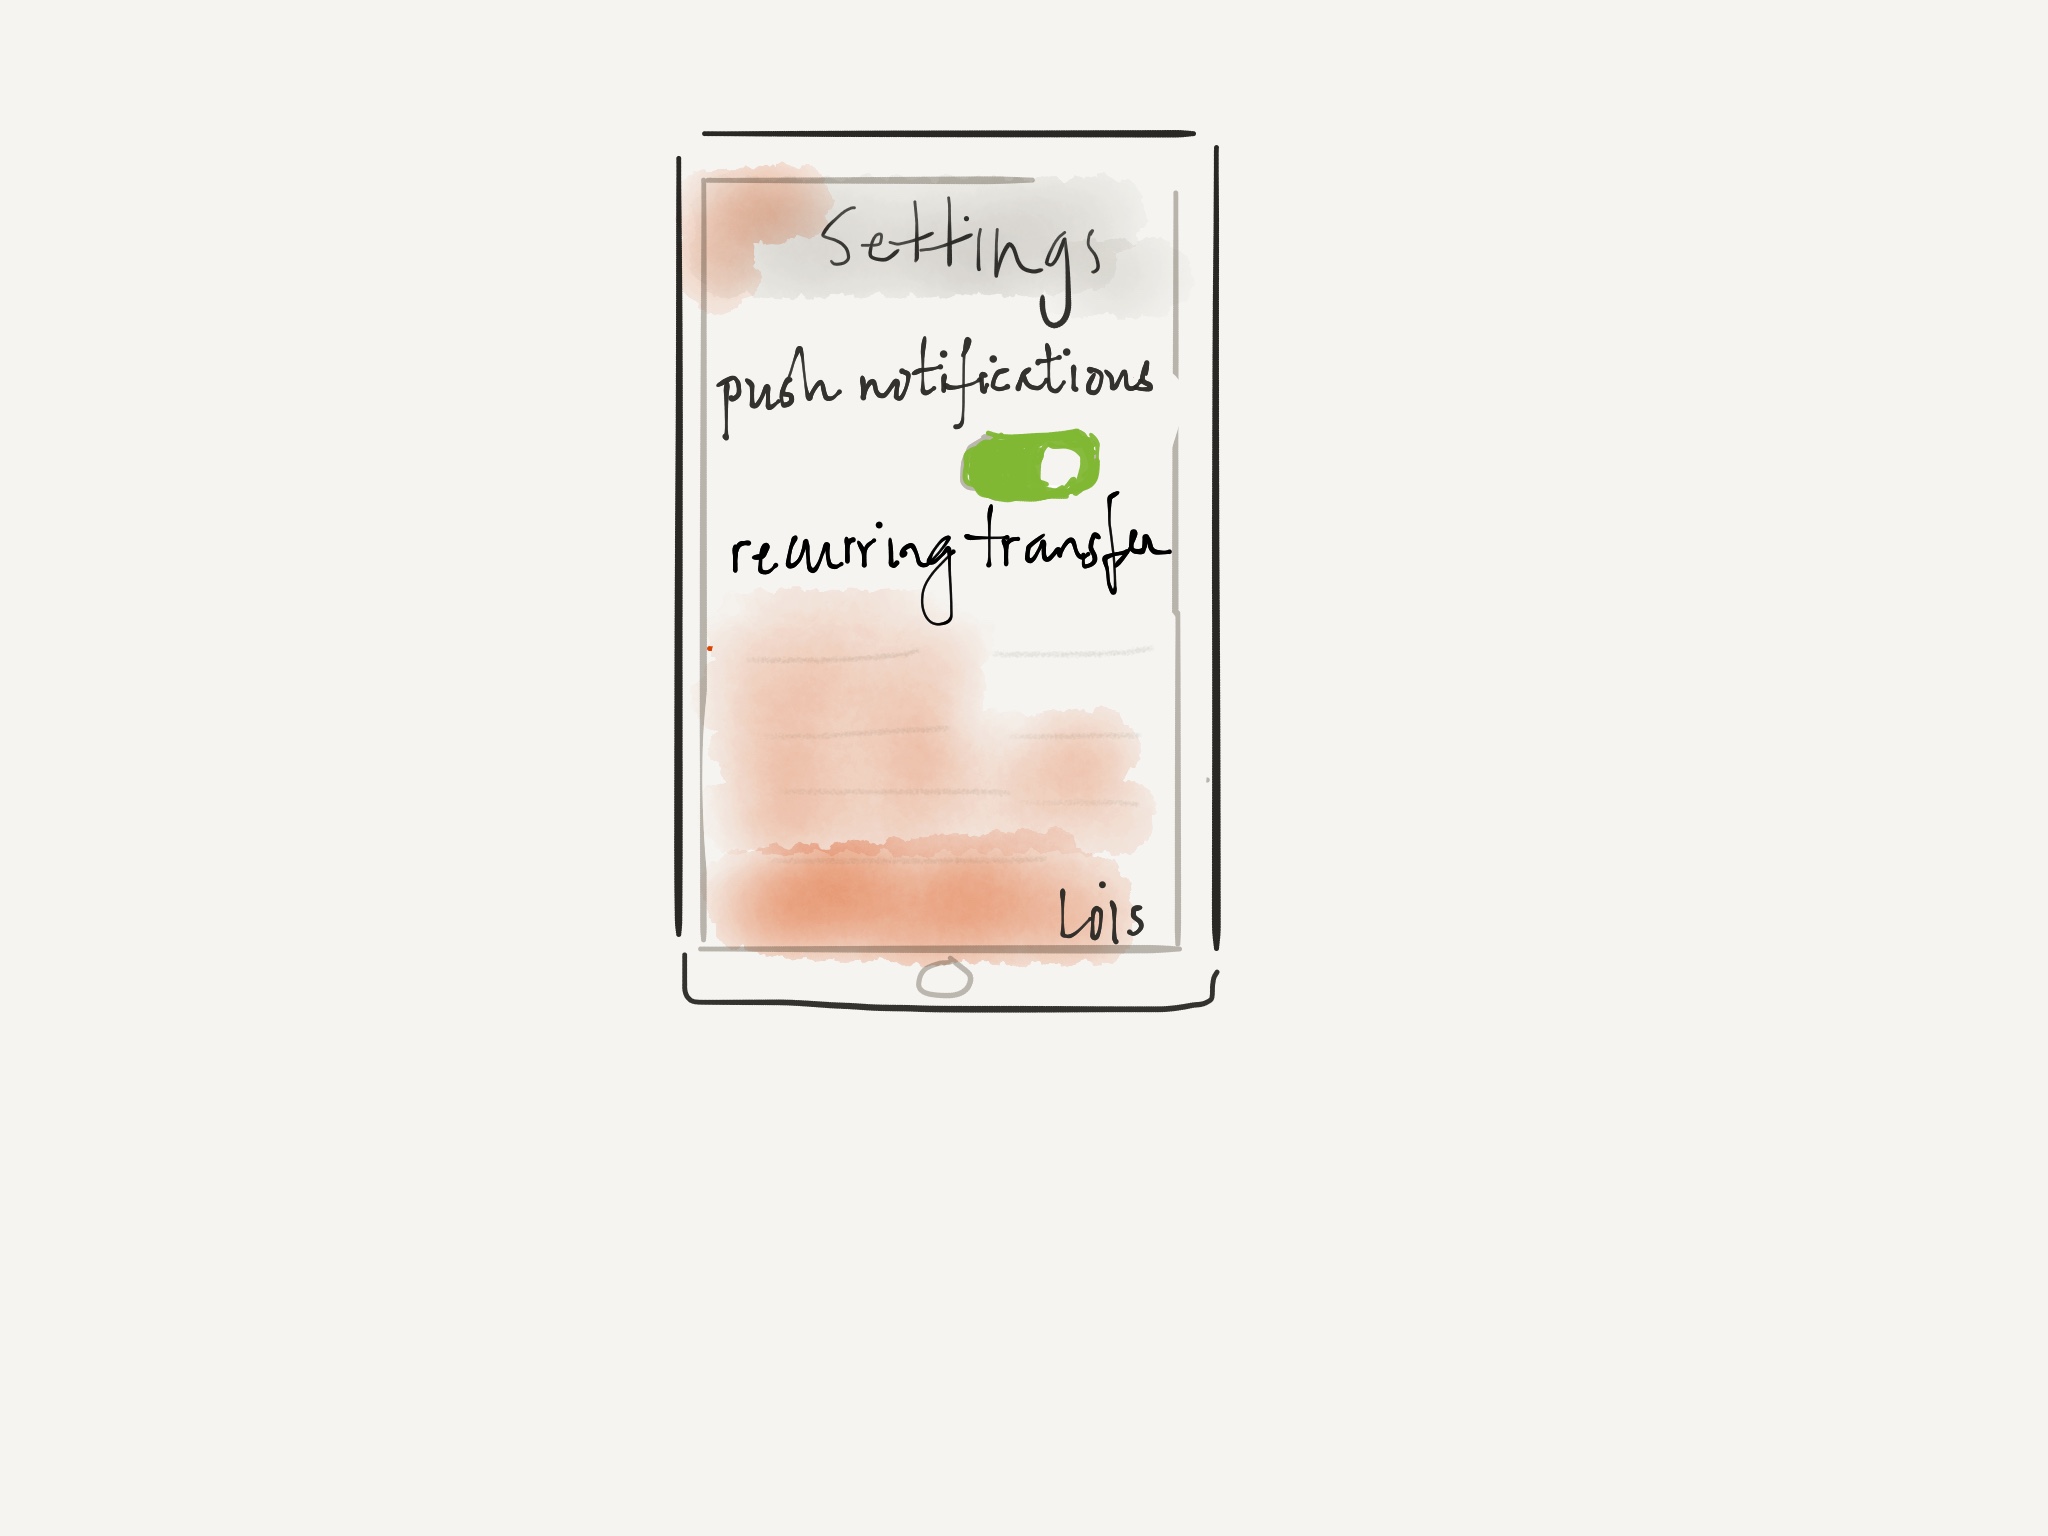 Settings
push notifications
recurring transfer
Lois